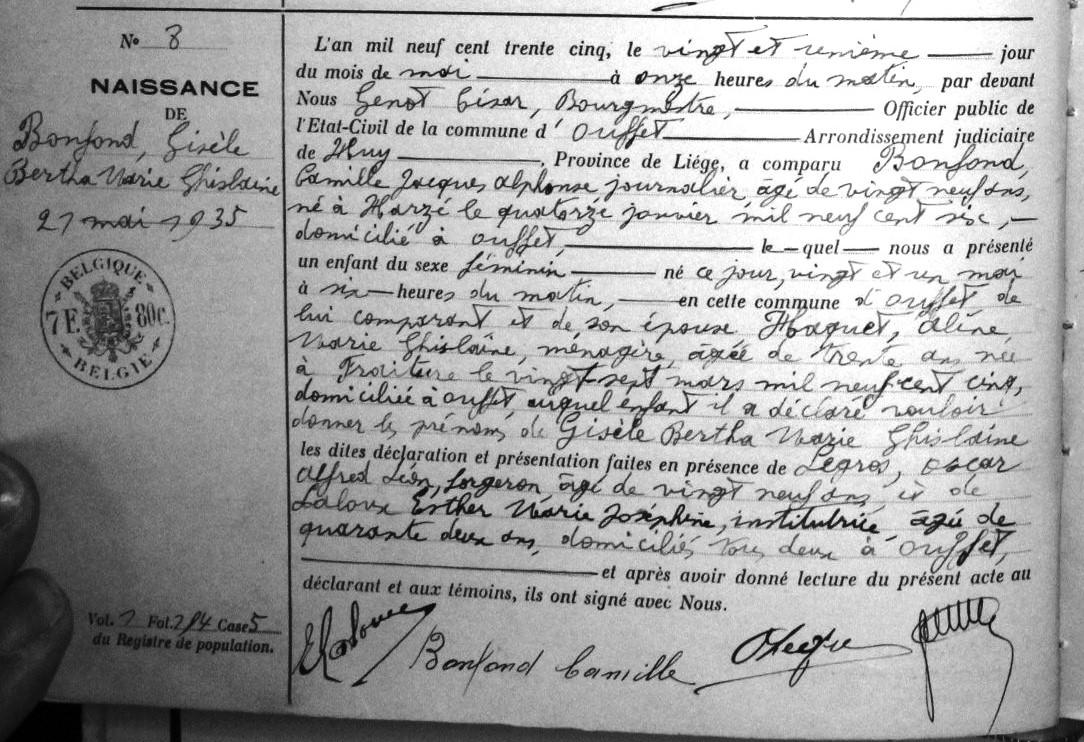 N° 8
NAISSANCE
DE
Bonfond, Gisèle
Bertha Marie Ghislaine
21 mai 1935
BELGIQUE
7 F. 80 c.
BELGIE
Vol. 7 Fol. 214 Case 5
du Registre de population.
L'an mil neuf cent trente cinq, le vingt et unième jour
du mois de mai à onze heures du matin, par devant
Nous Genot César, Bourgmestre, Officier public de
l'Etat-Civil de la commune d' Ouffet Arrondissement judiciaire
de Huy, Province de Liége, a comparu Bonfond,
Camille Jacques Alphonse journalier, âgé de vingt neuf ans,
né à Harzé le quatorze janvier mil neuf cent six,
domicilié à Ouffet, le quel nous a présenté
un enfant du sexe féminin né ce jour, vingt et un mai
à six heures du matin, en cette commune d'Ouffet de
lui comparant et de son épouse Haquet, Aline
Marie Ghislaine, ménagère, âgée de trente ans née
à Fraiture le vingt-sept mars mil neuf cent cinq,
domiciliée à Ouffet, auquel enfant il a déclaré vouloir
donner les prénoms de Gisèle Bertha Marie Ghislaine
les dites déclaration et présentation faites en présence de Legros, Oscar
Alfred Léon, forgeron, âgé de vingt neuf ans et de
Laloux Esther Marie Joséphine, institutrice âgée de
quarante deux ans, domiciliés tous deux à Ouffet,
et après avoir donné lecture du présent acte au
déclarant et aux témoins, ils ont signé avec Nous.
Bonfond Camille